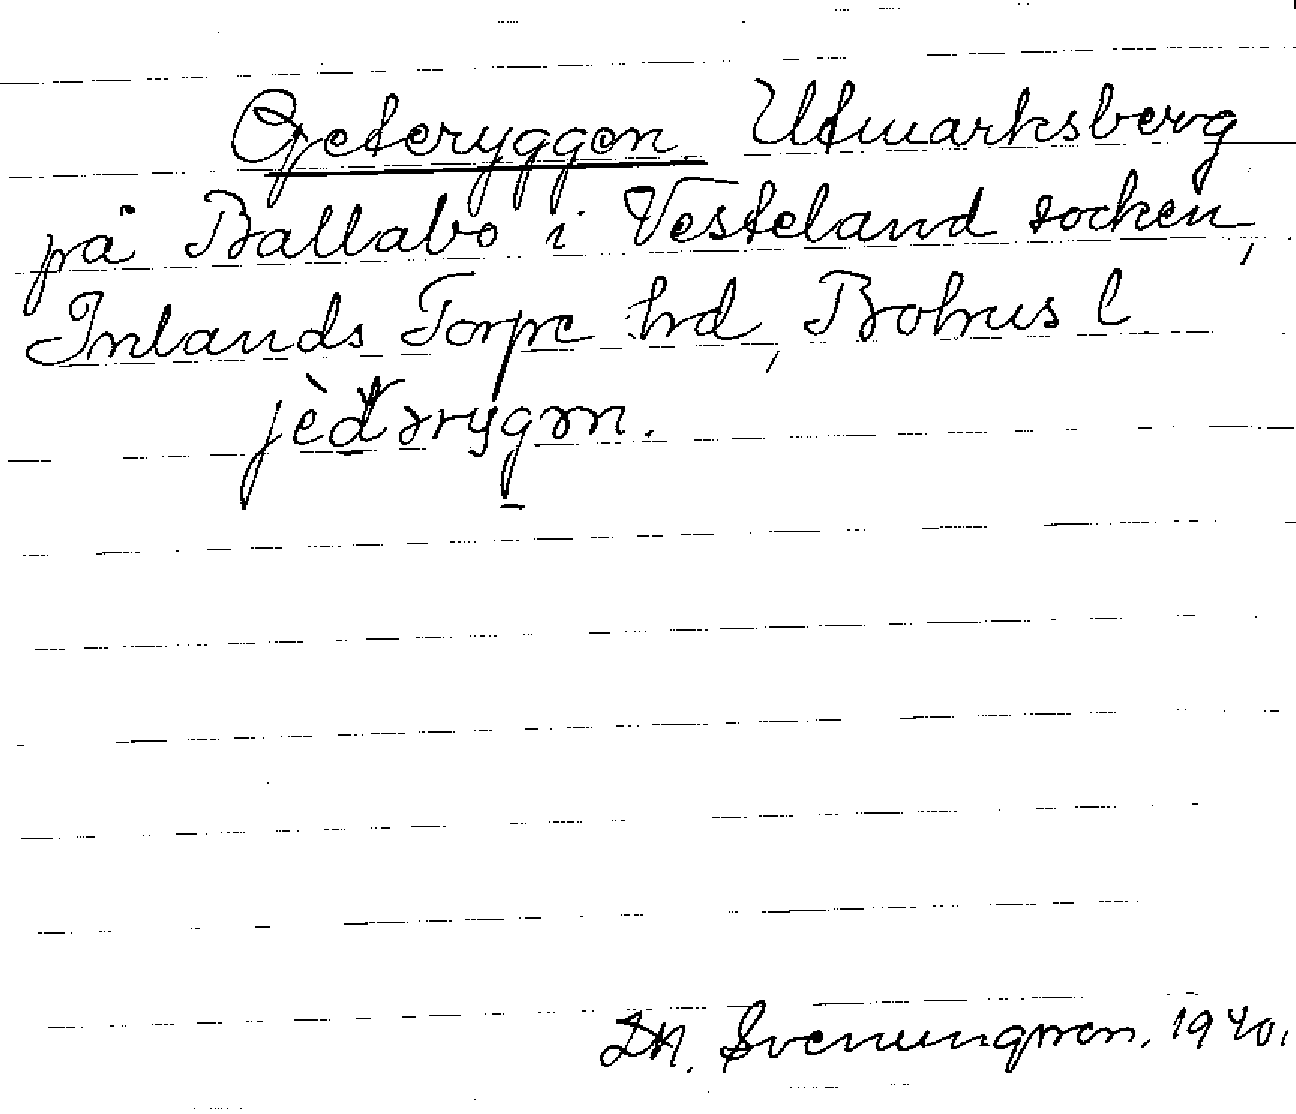 Geteryggen Utmarksberg
på Ballabo i Vesteland socken,
Inlands Torpe hd, Bohus l
Svenungsson. 1940.